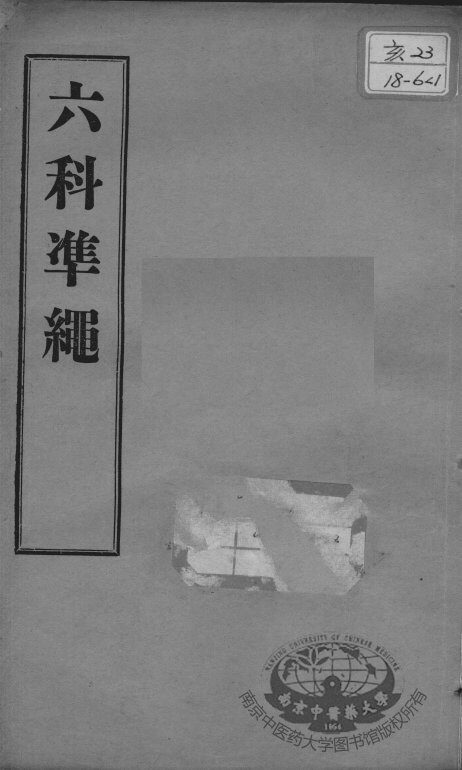 六科準繩
亥23
18-641
NANJING UNIVERSITY OF CHINESE MEDICINE
南京中醫藥大學
1954
南京中医药大学图书馆版权所有